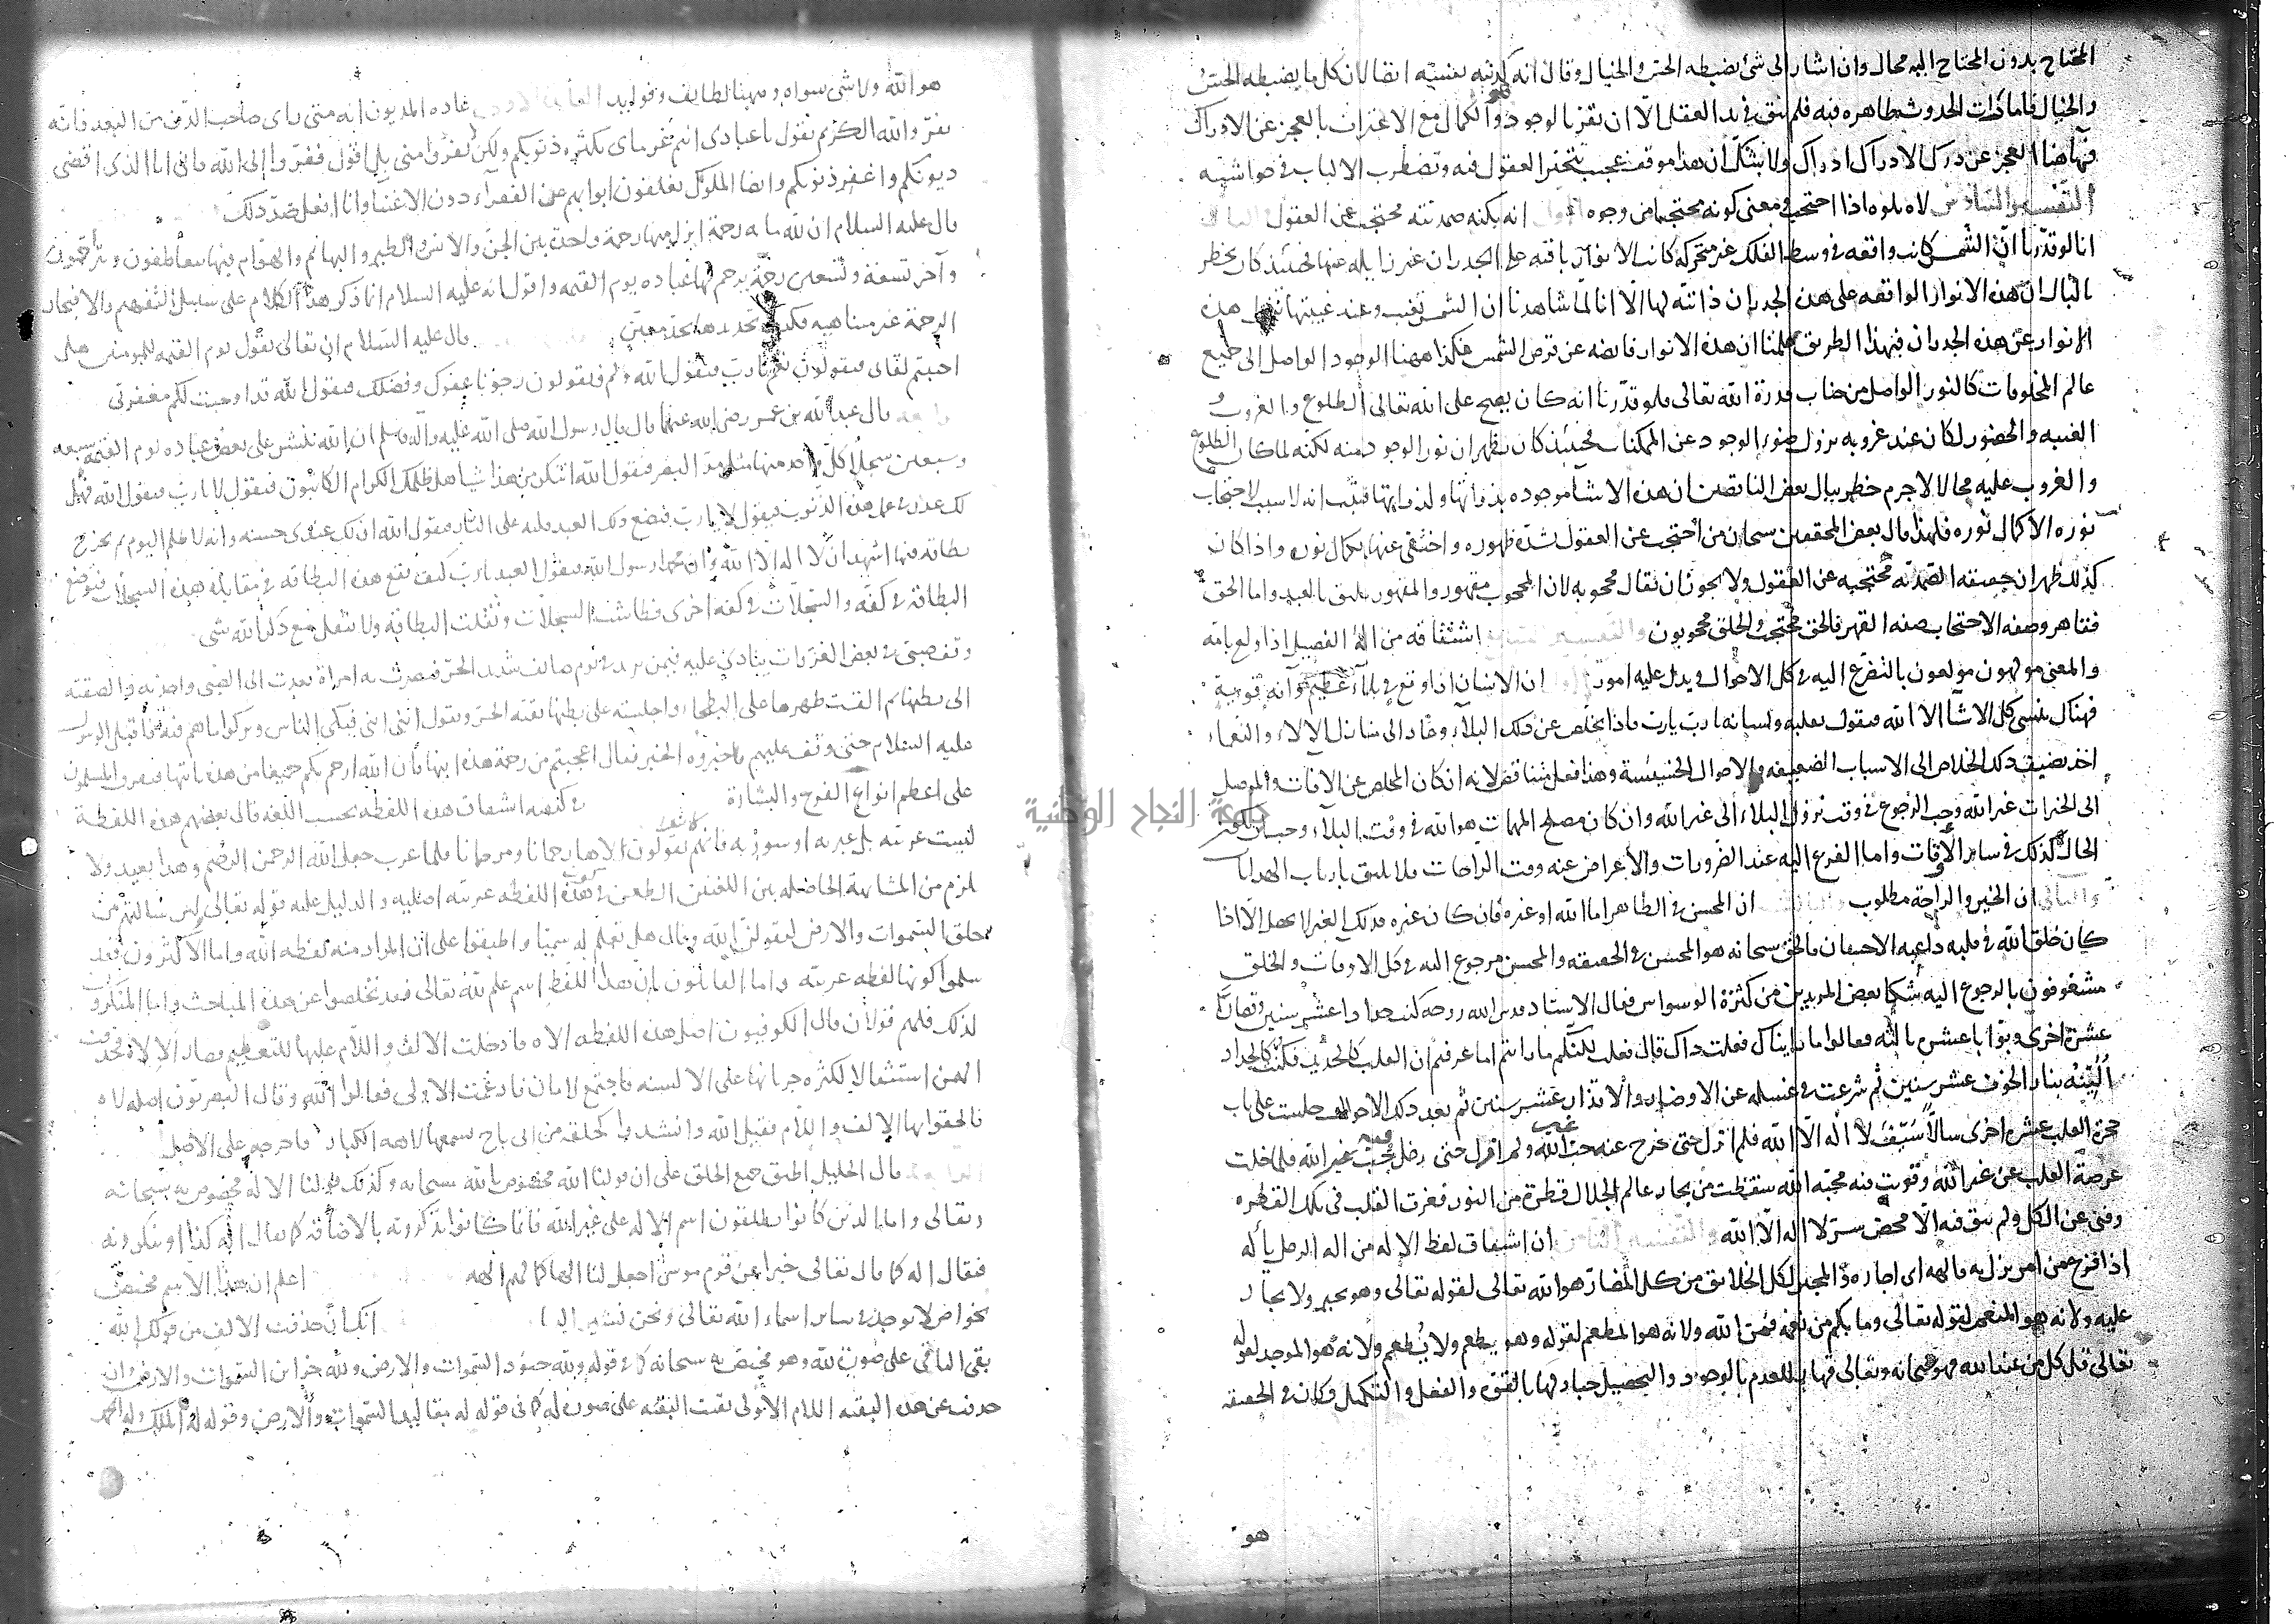 المحتاج بدون المحتاج اليه محال وان اشار الى شئ يضبطه الحس والخيال وقال انه كذبته نفسه ايضا لان كل ما يضبطه الحس
والخيال فامارات الحدوث ظاهره فيه فلم يبق في يد العقل الا ان يقر بالوجود والكمال مع الاعتراف بالعجز عن الادراك
فههنا العجز عن درك الادراك ادراك ولا شك ان هذا موقف عجيب تتحير العقول فيه وتضطرب الالباب في حواشيه
التفسير السادس لاه يلوه اذا احتجب ومعنى كونه محتجبا من وجوه الاول انه بكنه صمديته محتجب عن العقول
انا لو قدرنا ان الشمس كانت واقفه في وسط الفلك غير متحركه كانت الانوار باقيه على الجدران غير زايله عنها فحينئذ كان يخطر
بالبال ان هذه الانوار الواقعه على هذه الجدران ذاتيه لها الا انا لما شاهدنا ان الشمس تغيب وعند غيبتها تزول هذه
الانوار عن هذه الجدران فبهذا الطريق علمنا ان هذه الانوار فايضه عن قرص الشمس فكذا ههنا الوجود الواصل الى جميع
عالم المخلوقات كالنور الواصل من جناب قدرة الله تعالى فلو قدرنا انه كان يصح على الله تعالى الطلوع والغروب
الغيبه والحضور لكان عند غروبه يزول ضوء الوجود عن الممكنات فحينئذ كان يظهر ان نور الوجود منه لكنه لما كان الطلوع
والغروب عليه محالا لا جرم خطر ببال بعض الناقصين ان هذه الاشيا موجوده بذواتها ولذواتها فثبت انه لا سبب لاحتجاب
نوره الا كمال نوره فلهذا قال بعض المحققين سبحان من احتجب عن العقول بشدة ظهوره واختفى عنها بكمال نوره واذا كان
كذلك ظهر ان حقيقه الصمديه محتجبه عن العقول ولا يجوز ان يقال محجوبه لان المحجوب مقهور والمقهور يليق بالعبد واما الحق
فقاهر وصفه الاحتجاب صفه القهر فالحق محتجب والخلق محجوبون والتفسير اشتقاقه من اله الفصيل اذا ولع بامه
والمعنى مولهون مولعون بالتضرع اليه في كل الاحوال ويدل عليه امور ان الانسان اذا وقع في بلاء عظيم وآفه قويه
فهناك ينسى كل الاشيا الا الله فيقول بقلبه ولسانه يا رب يا رب فاذا تخلص عن ذلك البلاء وعاد الى منازل الآلاء والنعماء
اخذ يضيف ذلك الخلاص الى الاسباب الضعيفه والاحوال الخسيسة وهذا فعل متناقض لانه ان كان المخلص عن الافات والموصل
الى الخيرات غير الله وجب الرجوع في وقت نزول البلاء الى غير الله وان كان مصلح المهمات هو الله في وقت البلاء وجب ان يكون
الحال كذلك في ساير الاوقات واما الفزع اليه عند الضرورات والاعراض عنه وقت الراحات فلا يليق بارباب الهدايا
والثاني ان الخير والراحة مطلوب ان المحسن في الظاهر اما الله او غيره فان كان غيره فذلك الغير لا يحصل الا اذا
كان خلق الله في قلبه داعيه الاحسان فالحق سبحانه هو المحسن في الحقيقه والمحسن مرجوع اليه في كل الاوقات والخلق
مشغوفون بالرجوع اليه شكا بعض المريدين من كثرة الوسواس فقال الاستاد قدس الله روحه كنت حدادا عشر سنين وقصارا
عشرة اخرى وبوابا عشرة ثالثه فقالوا ما رايناك فعلت ذاك قال فعلت ولكنكم ما رايتم اما عرفتم ان القلب كالحديد فكنت كالحداد
اُلَيّنُه بنار الخوف عشر سنين ثم شرعت في غسله عن الاوضار والاقذار عشر سنين ثم بعد ذلك الاحوال جلست على باب
حجرة القلب عشرة اخرى سالاً سَيْفَ لا اله الا الله فلم ازل حتى خرج عنه حب غير الله ولم ازل حتى دخل فيه حب الله فلما خلت
عرصة القلب عن غير الله وقويت فيه محبة الله سقطت من بحار عالم الجلال قطرة من النور فغرق القلب في تلك القطره
وفنى عن الكل ولم يبق فيه الا محض سر لا اله الا الله والتفسير الثامن ان اشتقاق لفظ الاله من اله الرجل يأله
اذا فزع من امر نزل به فالهه اى اجاره والمجير لكل الخلائق من كل المضار هو الله تعالى لقوله تعالى وهو يجير ولا يجار
عليه ولانه هو المنعم لقوله تعالى وما بكم من نعمه فمن الله ولانه هو المطعم لقوله وهو يطعم ولا يُطعم ولانه هو الموجد لقوله
تعالى قل كل من عند الله فهو سبحانه وتعالى قهار للعدم بالوجود والتحصيل جبار لها بالقوة والفعل والتكميل وكان في الحقيقه
هو
هو الله ولا شى سواه وههنا لطايف وفوايد الفائدة الاولى عاده المديون انه متى راى صاحب الدين من البعد فانه
يفر والله الكريم يقول يا عبادى انتم غرماى بكثره ذنوبكم ولكن لا تفروا منى بل اقول ففروا الى الله فانى انا الذى اقضى
ديونكم واغفر ذنوبكم وايضا الملوك يغلقون ابوابهم عن الفقراء دون الاغنيا وانا افعل ضد ذلك
قال عليه السلام ان لله مايه رحمة انزل منها رحمة واحدة بين الجن والانس والطير والبهائم والهوام فبها يتعاطفون ويتراحمون
وآخر تسعة وتسعين رحمة يرحم بها عباده يوم القيمه واقول انه عليه السلام انما ذكر هذا الكلام على سبيل التفهيم والا فبحار
الرحمة غير متناهيه فكيف تحديدها بحد معين قال عليه السلام ان الله تعالى يقول يوم القيمه للمومنين هل
احببتم لقائى فيقولون نعم يا رب فيقول الله ولم فيقولون رجونا عفوك وفضلك فيقول الله قد اوجبت لكم مغفرتى
قال عبد الله بن عمر رضى الله عنهما قال قال رسول الله صلى الله عليه واله وسلم ان الله ينشر على بعض عباده يوم القيمه تسعه
وتسعين سجلا كل واحد منها مثل مد البصر فيقول الله اتنكر من هذا شيا هل ظلمك الكرام الكاتبون فيقول لا يا رب فيقول الله فهل
لك عذر في عمل هذه الذنوب فيقول لا يا رب فيضع ذلك العبد قلبه على النار فيقول الله ان لك عندى حسنه وانه لا ظلم اليوم ثم يخرج
بطاقه فيها اشهد ان لا اله الا الله وان محمدا رسول الله فيقول العبد يا رب كيف تقع هذه البطاقه في مقابلة هذه السجلات فتوضع
البطاقه في كفه والسجلات في كفه اخرى فطاشت السجلات وثقلت البطاقه ولا يثقل مع ذكر الله شى
وقف صبى في بعض الغزوات ينادى عليه فيمن يزيد في يوم صائف شديد الحر فبصرت به امراة فعدت الى الصبى واخذته والصقته
الى بطنها ثم القت ظهرها على البطحاء واجلسته على بطنها تقيه الحر وتقول ابنى ابنى فبكى الناس وتركوا ما هم فيه فاقبل الرسول
عليه السلام حتى وقف عليهم فاخبروه الخبر فقال اعجبتم من رحمة هذه ابنها فان الله ارحم بكم جميعا من هذه بابنها فتفرق المسلمون
على اعظم انواع الفرح والبشارة في كيفيه اشتقاق هذه اللفظه بحسب اللغه قال بعضهم هذه اللفظة
ليست عربيه بل عبريه او سوريه فانهم يقولون الاها رحمانا ومرحيانا فلما عرب جعل الله الرحمن الرحيم وهذا بعيد ولا
يلزم من المشابهة الحاصله بين اللغتين الطعن في كون هذه اللفظه عربيه اصليه والدليل عليه قوله تعالى ولئن سالتهم من
خلق السموات والارض ليقولن الله وقال هل تعلم له سميا واطبقوا على ان المراد منه لفظه الله واما الاكثرون فقد
سلموا كونها لفظه عربيه واما القائلون بان هذا اللفظ اسم علم لله تعالى فقد تخلصوا عن هذه المباحث واما المنكرون
لذلك فلهم قولان قال الكوفيون اصل هذه اللفظه الاه فادخلت الالف واللام عليها للتعظيم فصار الالاه فحذفت
الهمزة استثقالا لكثره جريانها على الالسنه فاجتمع لامان فادغمت الاولى فقالوا الله وقال البصريون اصله لاه
فالحقوا بها الالف واللام فقيل الله وانشدوا كحلفه من ابى رباح يسمعها لاهه الكبار فاخرجه على الاصل
قال الخليل اطبق جميع الخلق على ان قولنا الله مخصوص بالله سبحانه وكذلك قولنا الاله مخصوص به سبحانه
وتعالى واما الذين كانوا يطلقون اسم الاله على غير الله فانما كانوا يذكرونه بالاضافه كما يقال اله كذا او ينكرونه
فيقال اله كما قال تعالى خبرا عن قوم موسى اجعل لنا الها كما لهم الهه اعلم ان هذا الاسم مختص
بخواص لا توجد في ساير اسماء الله تعالى ونحن نشير اليها انك ان حذفت الالف من قولك الله
بقى الباقى على صورة لله وهو مختص به سبحانه كما في قوله ولله جنود السموات والارض ولله خزاين السموات والارض وان
حذفت عن هذه البقيه اللام الاولى بقيت البقيه على صورة له كما في قوله له مقاليد السموات والارض وقوله له الملك وله الحمد
جامعة النجاح الوطنية